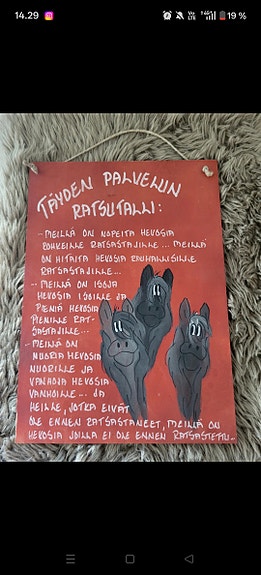 14.29
19 %
TÄYDEN PALVELUN
RATSUTALLI:
- MEILLÄ ON NOPEITA HEVOSIA
ROHKEILLE RATSASTAJILLE... MEILLÄ
ON HITAITA HEVOSIA RAUHALLISILLE
RATSASTAJILLE...
- MEILLÄ ON ISOJA
HEVOSIA ISOILLE JA
PIENIÄ HEVOSIA
PIENILLE RAT-
SASTAJILLE...
- MEILLÄ ON
NUORIA HEVOSIA
NUORILLE JA
VANHOJA HEVOSIA
VANHOILLE... JA
HEILLE, JOTKA EIVÄT
OLE ENNEN RATSASTANEET, MEILLÄ ON
HEVOSIA JOILLA EI OLE ENNEN RATSASTETTU..